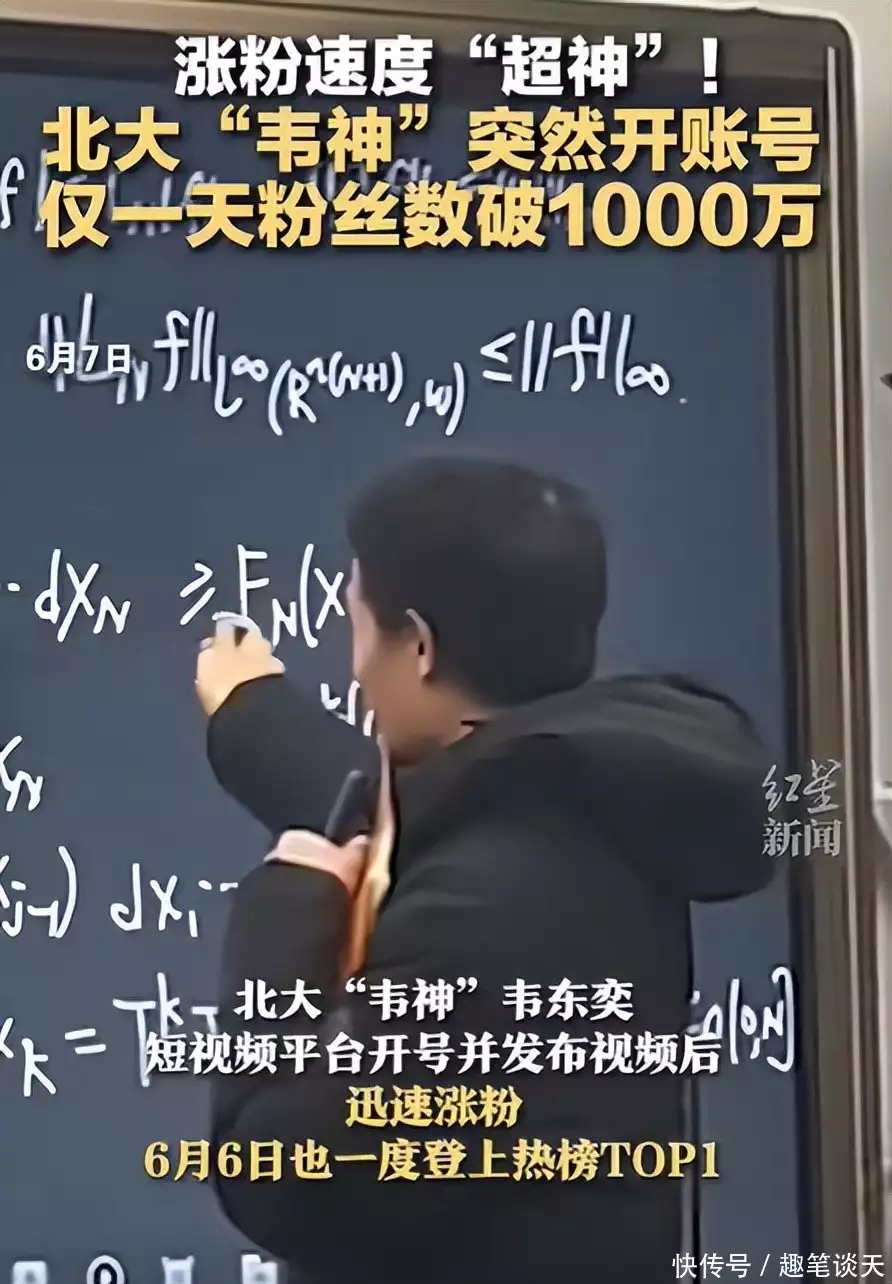 涨粉速度“超神”!
北大“韦神”突然开账号
仅一天粉丝数破1000万
6月7日
f||L∞(R^2(N+1),w) ≤||f||∞.
dXN ≥ FN(X
j-1) dXi
xk = Tk
[0,N]
红星
新闻
北大“韦神”韦东奕
短视频平台开号并发布视频后
迅速涨粉
6月6日也一度登上热榜TOP1
快传号 / 趣笔谈天